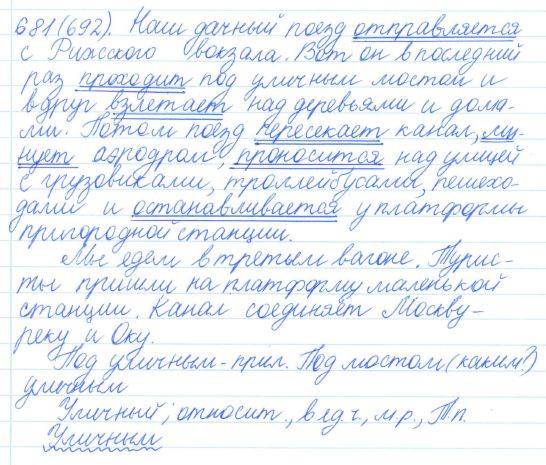 681(692). Наш дачный поезд отправляется
с Рижского вокзала. Вот он в последний
раз проходит под уличным мостом и
вдруг взлетает над деревьями и дома-
ми. Потом поезд пересекает канал, ми-
нует аэродром, проносится над улицей
с грузовиками, троллейбусами, пешехо-
дами и останавливается у платформы
пригородной станции.
Мы едем в третьем вагоне. Турис-
ты пришли на платформу маленькой
станции. Канал соединяет Москву-
реку и Оку.
Под уличным - прил. Под мостом (каким?)
уличным
Уличный; относит., в ед.ч., м.р., Т.п.
Уличным